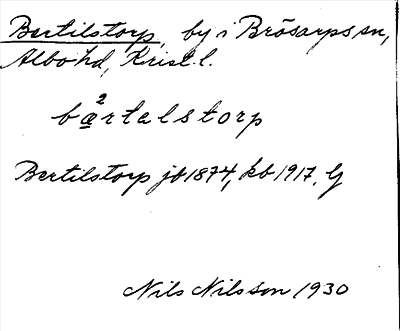 Bertilstorp, by i Brösarps sn,
Albo hd, Krist. l.
bæ²rtalstorp
Bertilstorp jb 1874, kb 1917. G
Nils Nilsson 1930